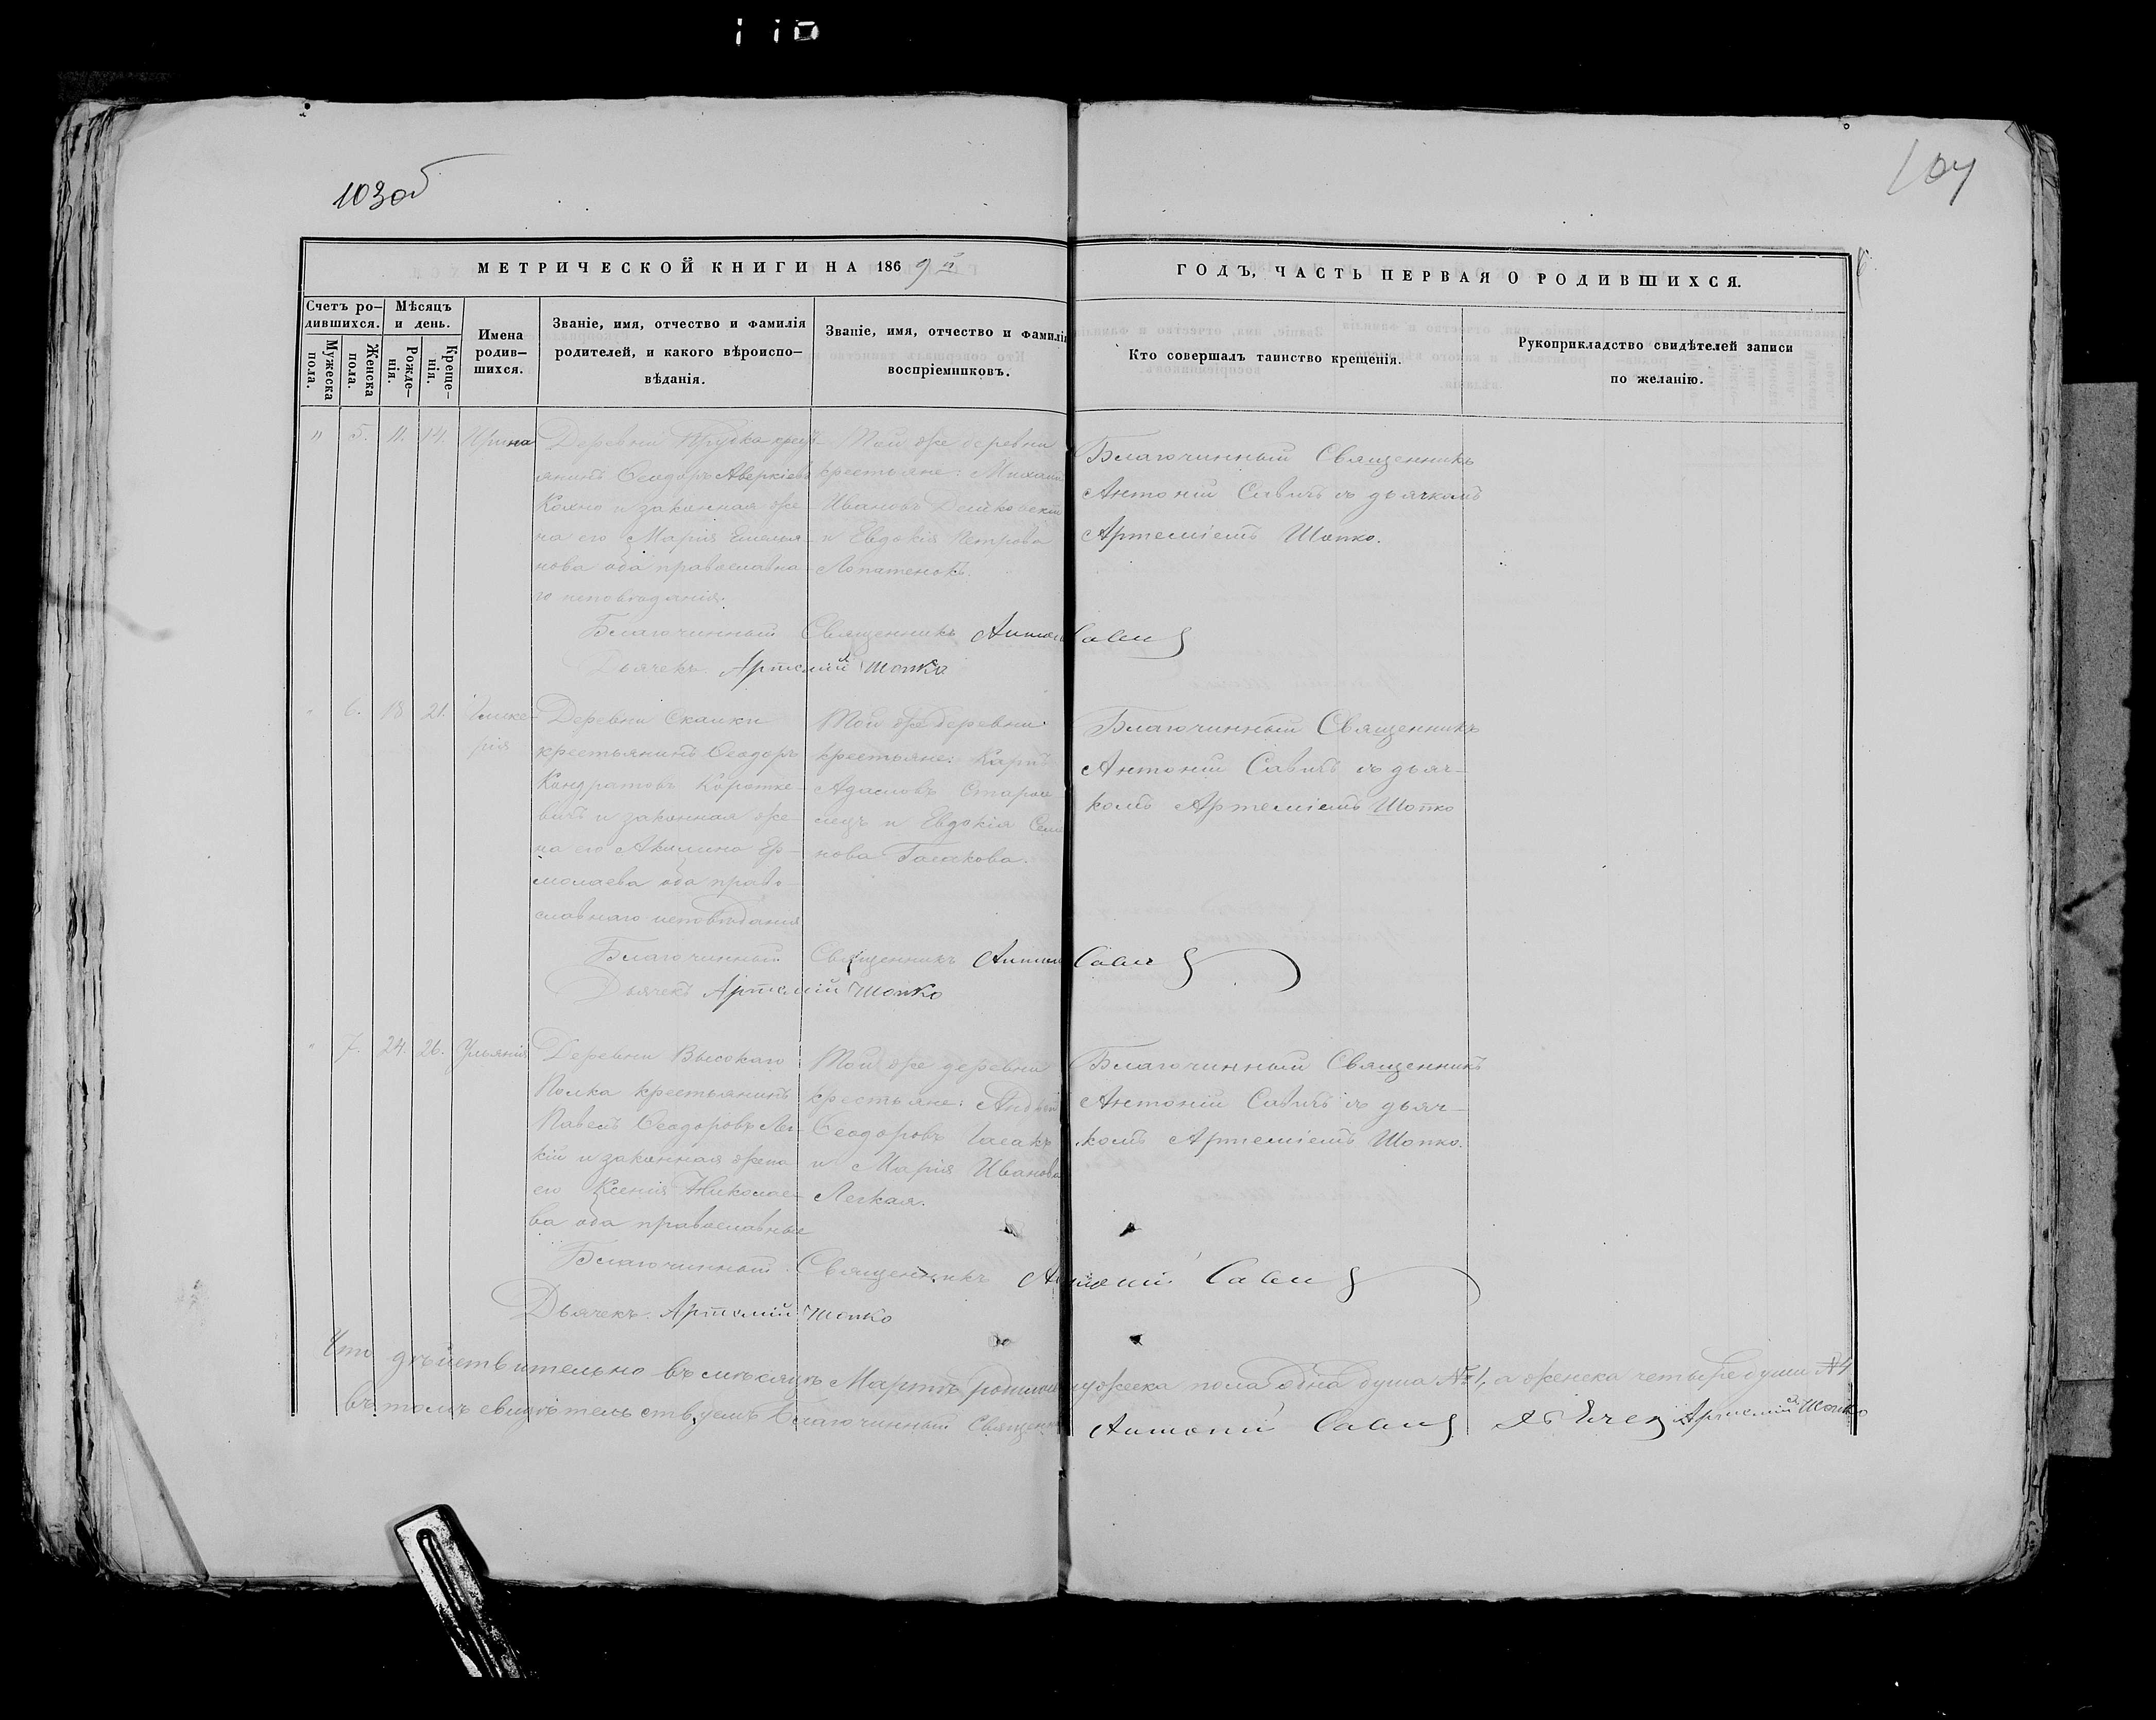 103об
104
МЕТРИЧЕСКОЙ КНИГИ НА 1869й
ГОДЪ, ЧАСТЬ ПЕРВАЯ О РОДИВШИХСЯ.
Счетъ ро-
дившихся.
Мужеска
пола.
Женска
пола.
Мѣсяцъ
и день.
Рожде-
нія.
Креще-
нія.
Имена
родив-
шихся.
Званіе, имя, отчество и фамилія
родителей, и какого вѣроиспо-
вѣданія.
Званіе, имя, отчество и фамилія
воспріемниковъ.
Кто совершалъ таинство крещенія.
Рукоприкладство свидѣтелей записи
по желанію.
" 5. 11. 14. Ирина
Деревни крест-
янинъ Ѳеодоръ Аверкіевъ
Кохно и законная же-
на его Марія Емелья-
нова оба православна-
го исповѣданія.
Той же деревни
крестьяне: Михаилъ
Ивановъ
и Евдокія Петрова
Лопатенокъ.
Благочинный Священникъ
Антоній Савичъ съ дьячкомъ
Артеміемъ Шопко.
Благочинный Священникъ Антоній Савич
Дьячекъ Артемій Шопко
" 6. 18 21. Глике-
рія
Деревни Скалки
крестьянинъ Ѳеодоръ
Кондратовъ Коротке-
вичъ и законная же-
на его Акилина Ер-
молаева оба право-
славнаго исповѣданія
Той же деревни
крестьяне: Карпъ
Адамовъ
и Евдокія Семе-
нова
Благочинный Священникъ
Антоній Савичъ съ дьяч-
комъ Артеміемъ Шопко
Благочинный Священникъ Антоній Савич
Дьячекъ Артемій Шопко
" 7. 24. 26. Ульянія
Деревни Высокаго
Полка крестьянинъ
Павелъ Ѳеодоровъ Лег-
кій и законная жена
его Ксенія Николае-
ва оба православные
Той же деревни
крестьяне: Андрей
Ѳеодоровъ
и Марія Иванова
Легкая.
Благочинный Священникъ
Антоній Савичъ съ дьяч-
комъ Артеміемъ Шопко.
Благочинный Священникъ Антоній Савич
Дьячекъ Артемій Шопко
Что дѣйствительно въ мѣсяцѣ Мартѣ родилось мужеска пола одна душа №1, а женска четыре души №4
въ томъ свидѣтельствуемъ Благочинный Священникъ Антоній Савич Дьячек Артемій Шопко